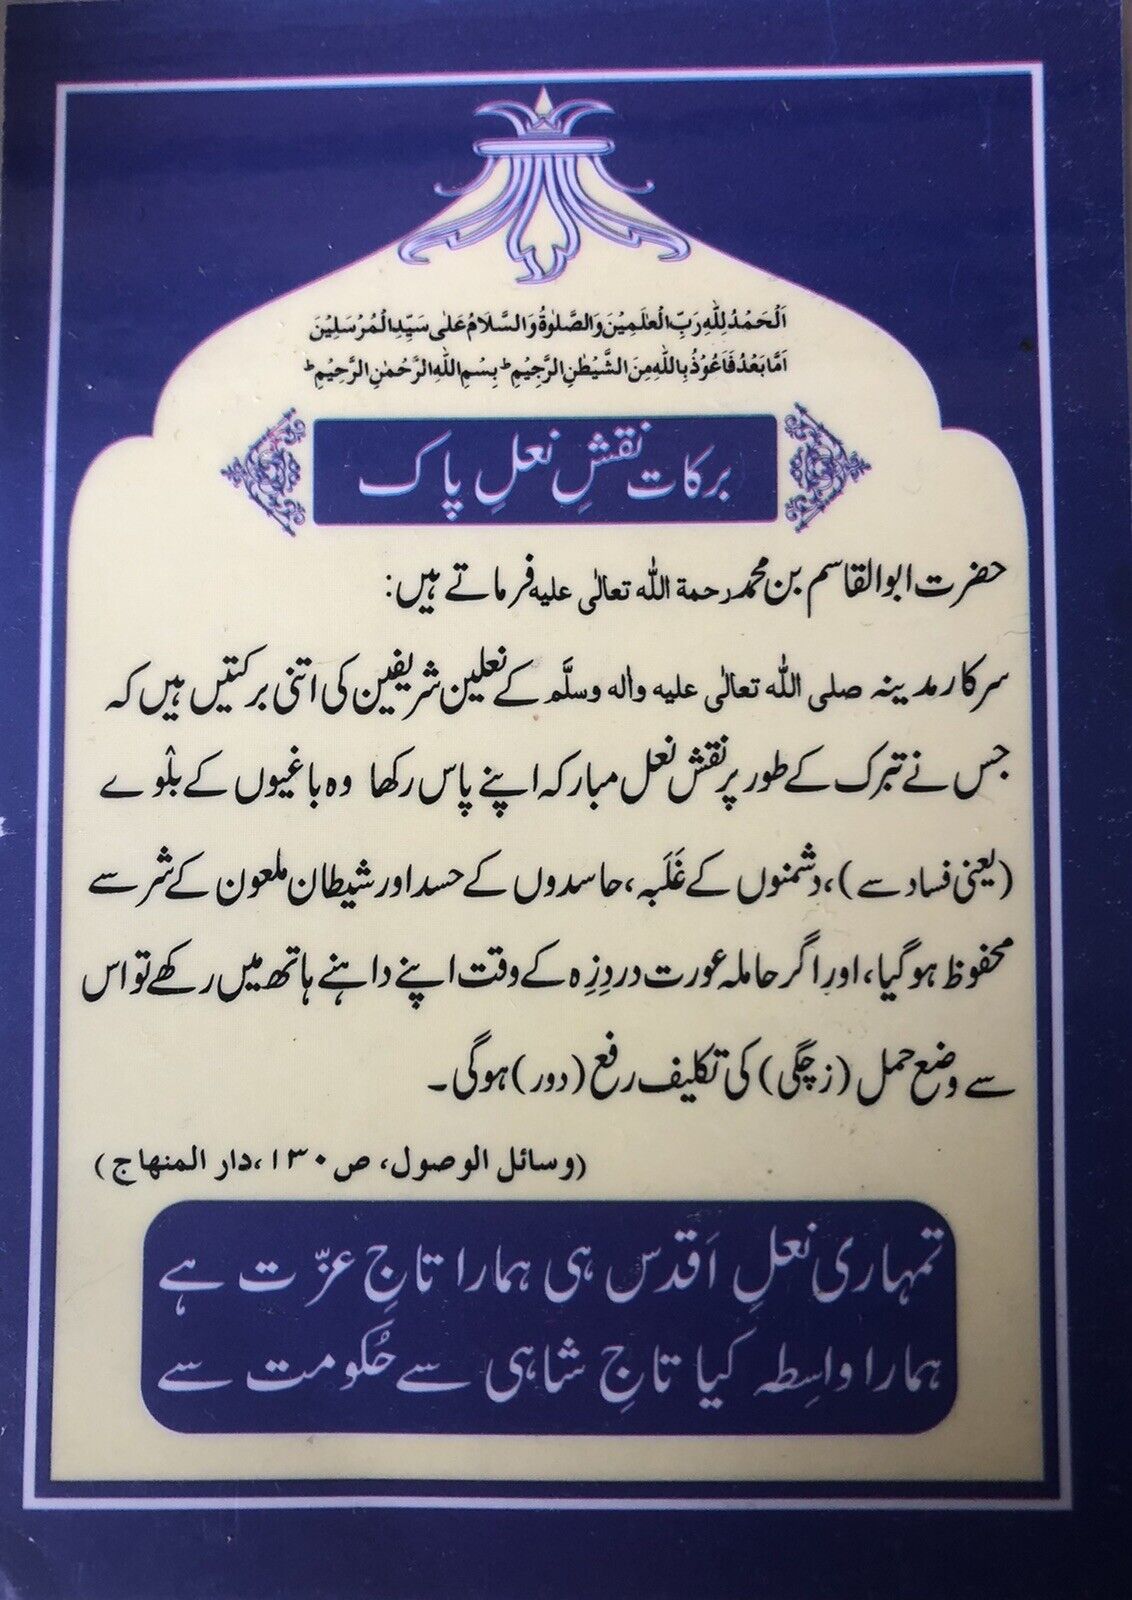 اَلْحَمْدُ لِلّٰهِ رَبِّ الْعٰلَمِیْنَ وَالصَّلٰوةُ وَالسَّلَامُ عَلٰی سَیِّدِ الْمُرْسَلِیْنَ
اَمَّا بَعْدُ فَاَعُوْذُ بِاللّٰهِ مِنَ الشَّیْطٰنِ الرَّجِیْمِ ؕ بِسْمِ اللّٰهِ الرَّحْمٰنِ الرَّحِیْمِ ؕ
برکات نقشِ نعلِ پاک
حضرت ابوالقاسم بن محمد رحمة اللّٰه تعالٰی علیه فرماتے ہیں:
سرکار مدینہ صلی اللّٰه تعالٰی علیه واٰله وسلَّم کے نعلین شریفین کی اتنی برکتیں ہیں کہ
جس نے تبرک کے طور پر نقش نعل مبارکہ اپنے پاس رکھا وہ باغیوں کے بلْوے
(یعنی فساد سے)، دشمنوں کے غَلَبہ، حاسدوں کے حسد اور شیطان ملعون کے شر سے
محفوظ ہوگیا، اور اگر حاملہ عورت دردِزِہ کے وقت اپنے داہنے ہاتھ میں رکھے تو اس
سے وضع حمل (زچگی) کی تکلیف رفع (دور) ہوگی۔
(وسائل الوصول، ص ۱۳۰، دار المنهاج)
تمہاری نعلِ اَقدس ہی ہمارا تاجِ عزّت ہے
ہمارا واسِطہ کیا تاجِ شاہی سے حُکومت سے